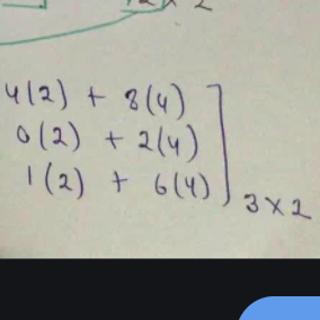 4(2) + 8(4)
0(2) + 2(4)
1(2) + 6(4)
3 x 2